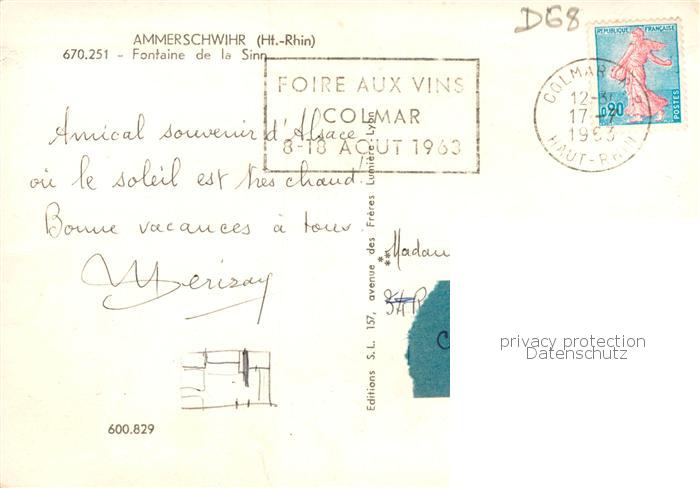 D68
AMMERSCHWIHR (Ht.-Rhin)
670.251 - Fontaine de la Sinn
FOIRE AUX VINS
COLMAR
8-18 AOUT 1963
REPUBLIQUE FRANÇAISE
0,20
POSTES
COLMAR
12-30
17-7
1963
HAUT-RHIN
Amical souvenir d'Alsace
où le soleil est très chaud!
Bonne vacances à tous.
Merizay
Editions S. L. 157, avenue des Frères Lumière-Lyon
Madam
privacy protection
Datenschutz
600.829